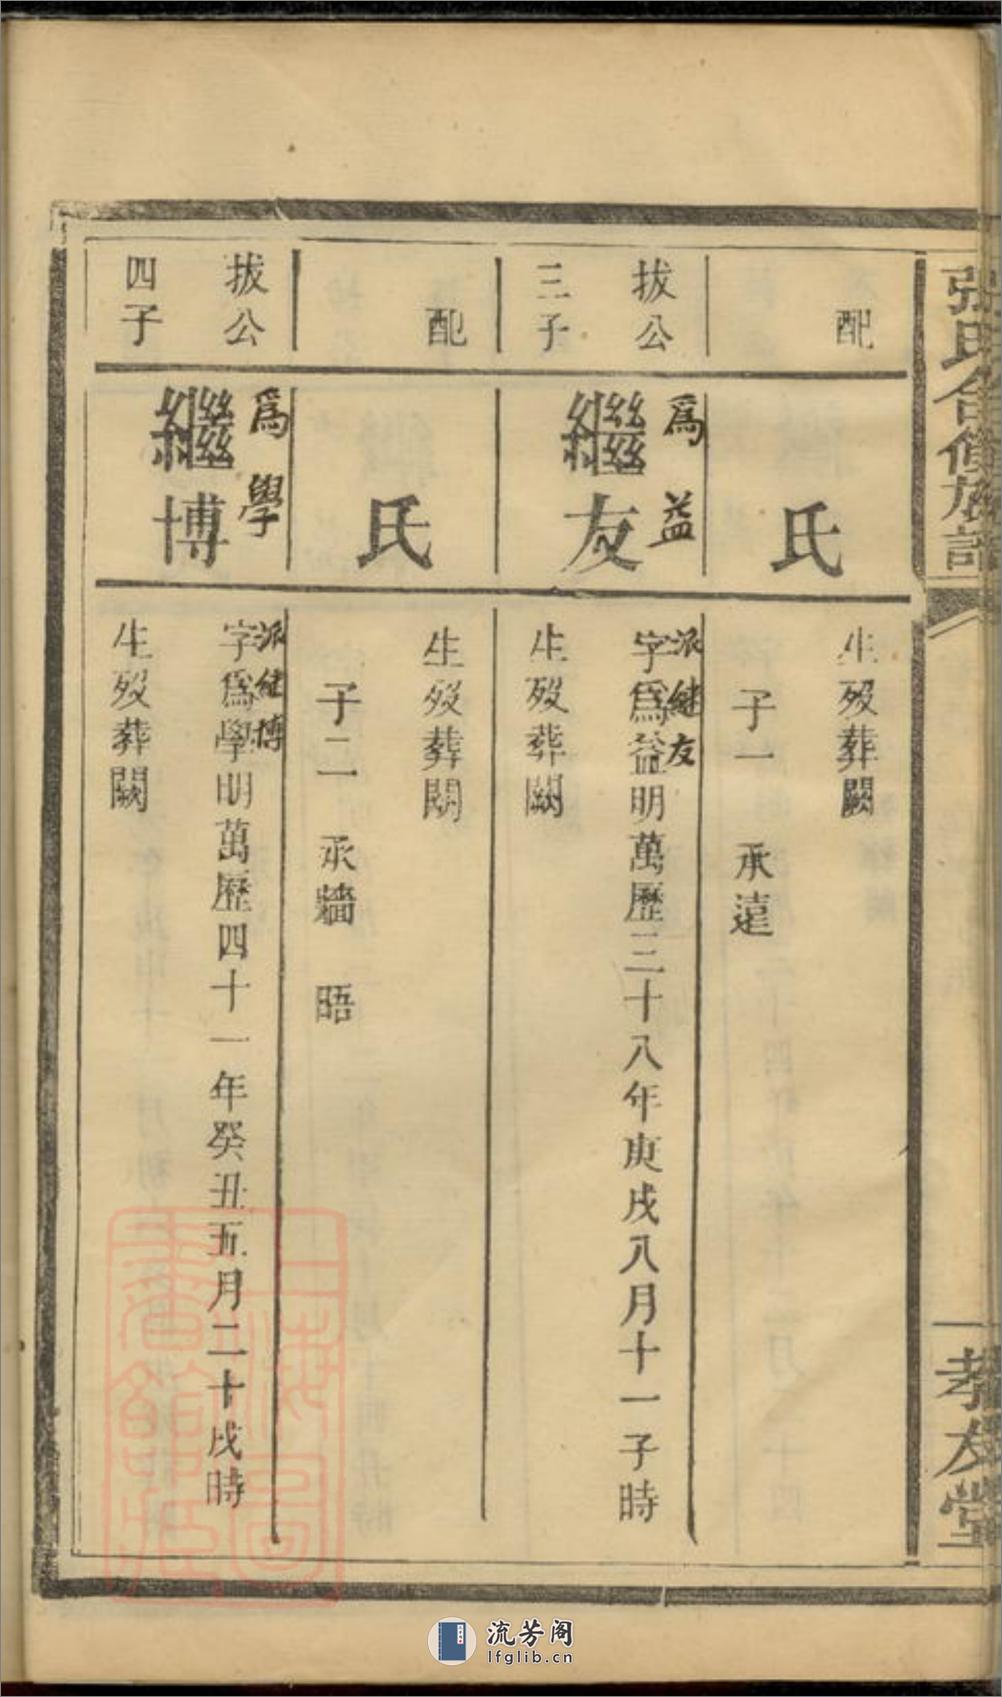 張氏合修族譜
孝友堂
配
氏
生歿葬闕
子一　承遠
拔公
三子
爲益
繼友
派継友
字爲益明萬歷三十八年庚戌八月十一子時
生歿葬闕
配
氏
生歿葬闕
子二　承牆　晤
拔公
四子
爲學
繼博
派継博
字爲學明萬歷四十一年癸丑五月二十戌時
生歿葬闕
上海圖書館藏
流芳阁
lfglib.cn